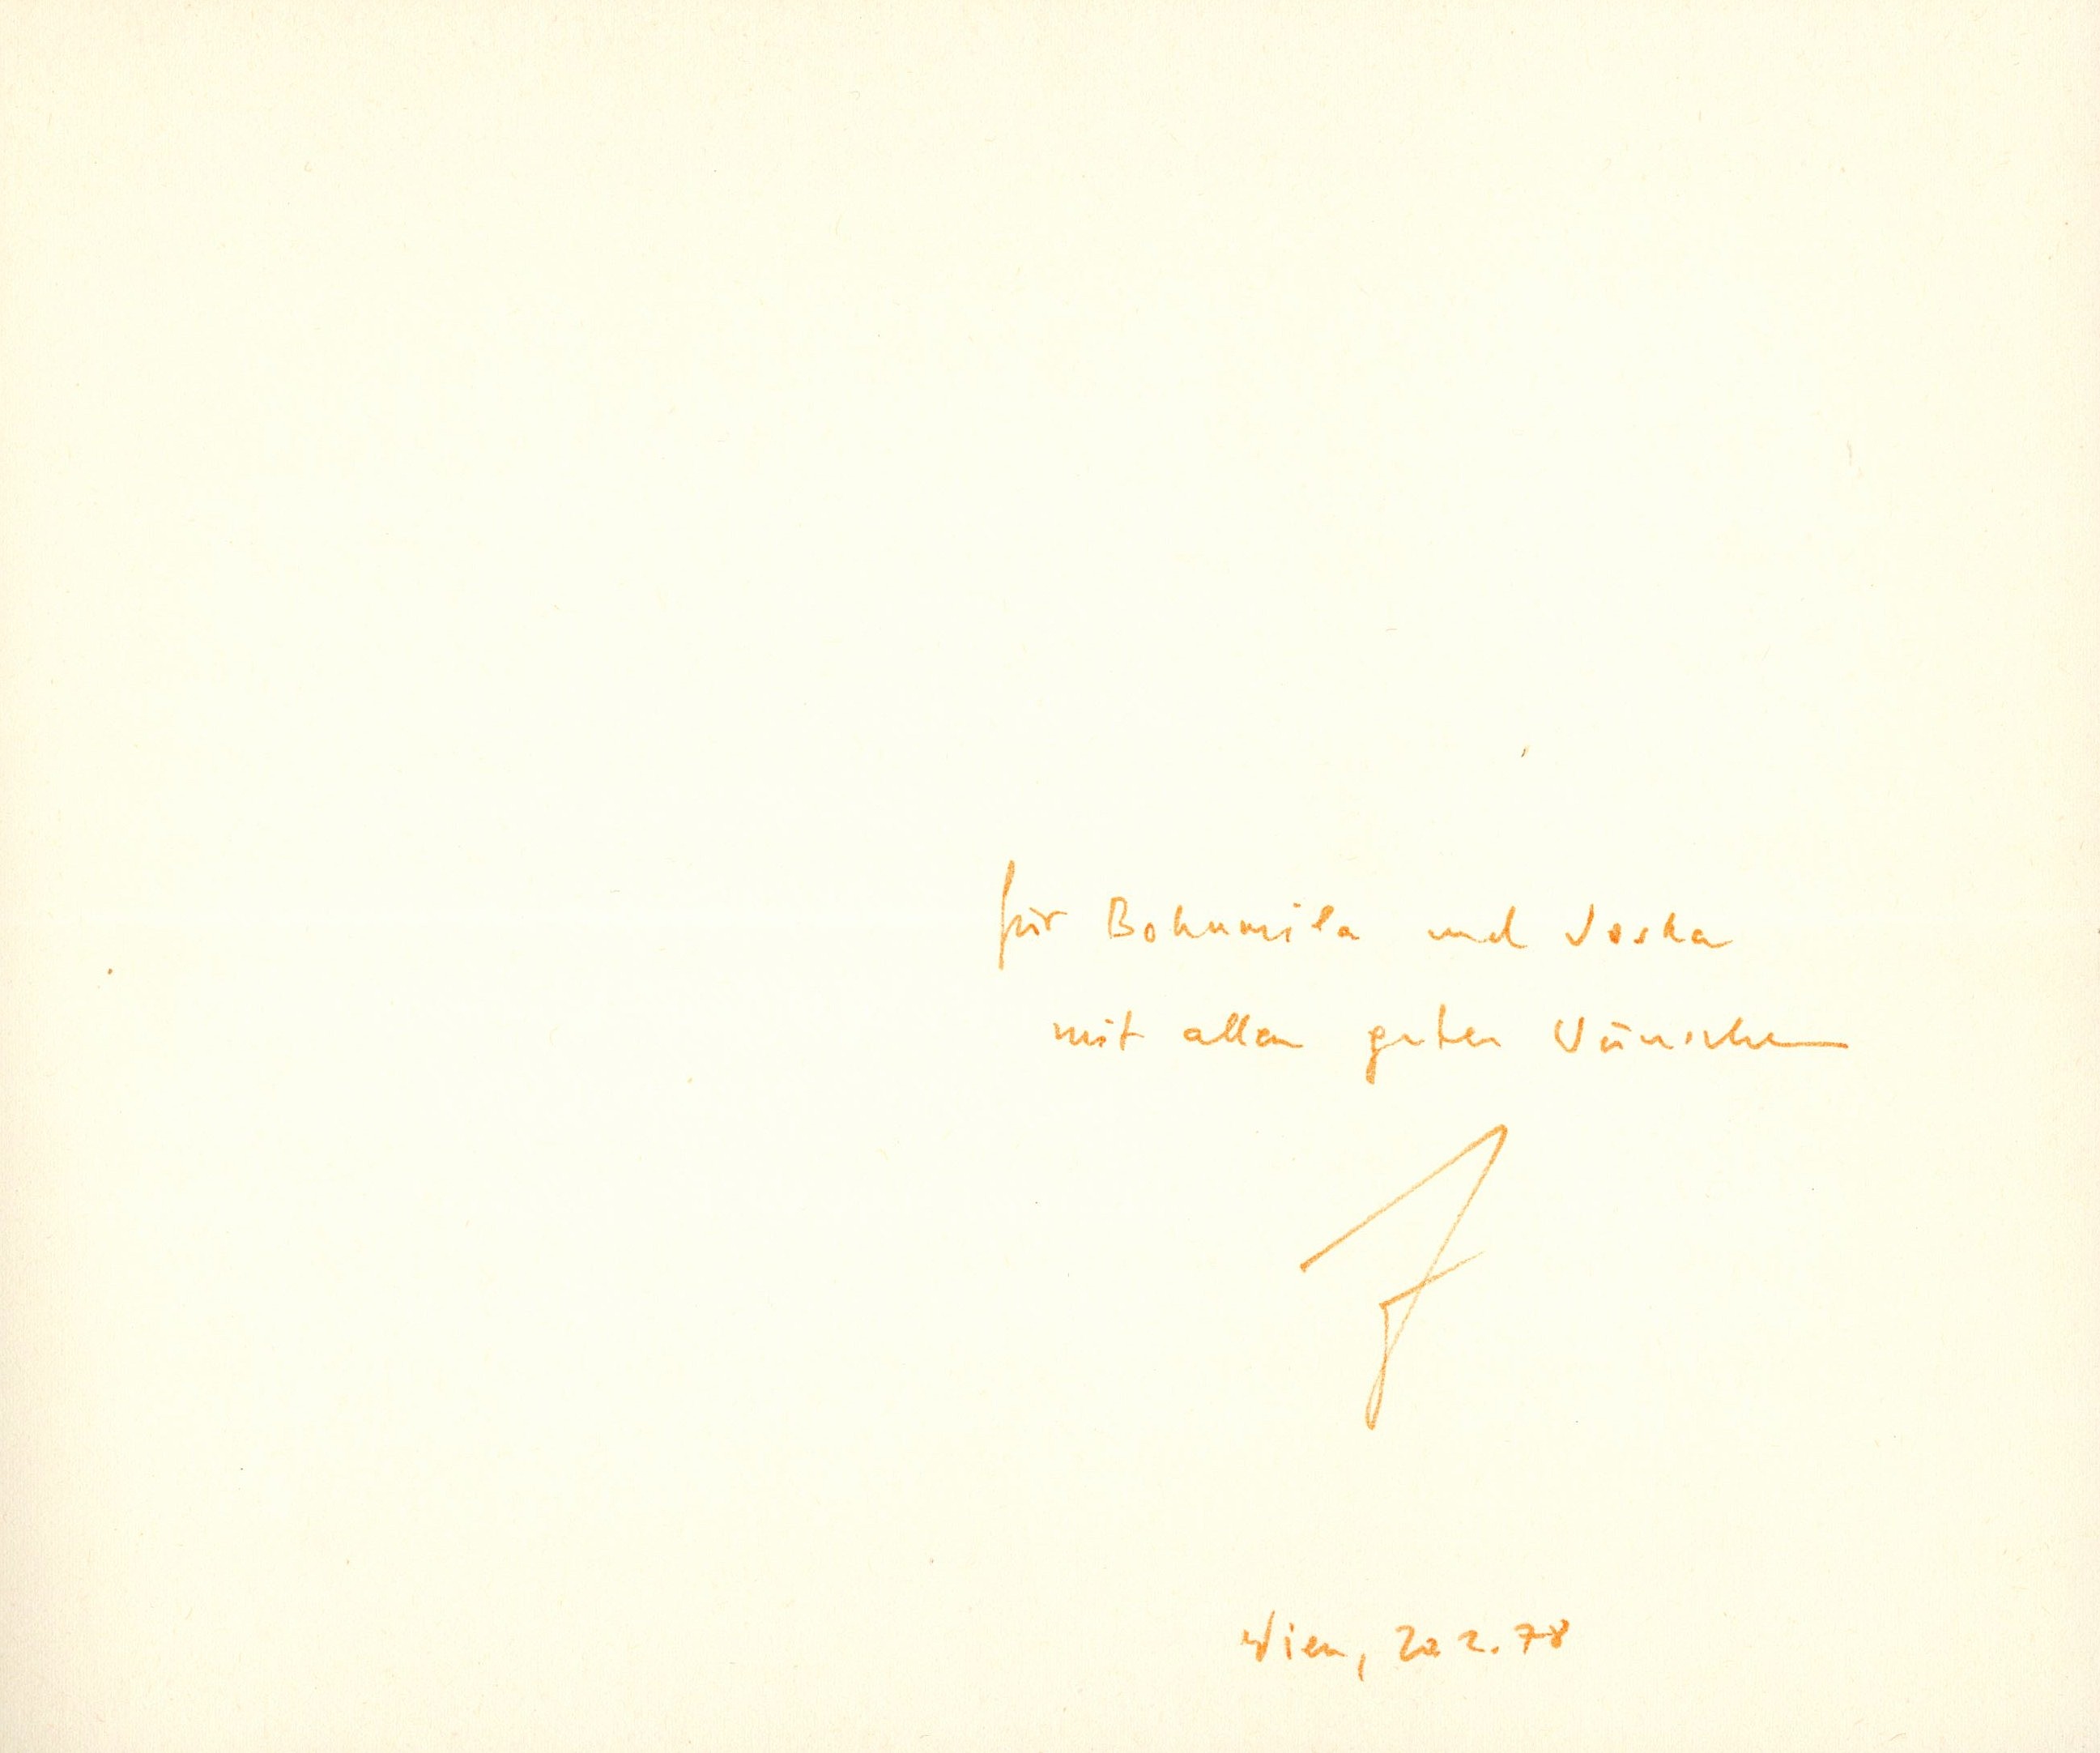 für Bohumila und Joska
mit allen guten Wünschen
Wien, 20 2. 78